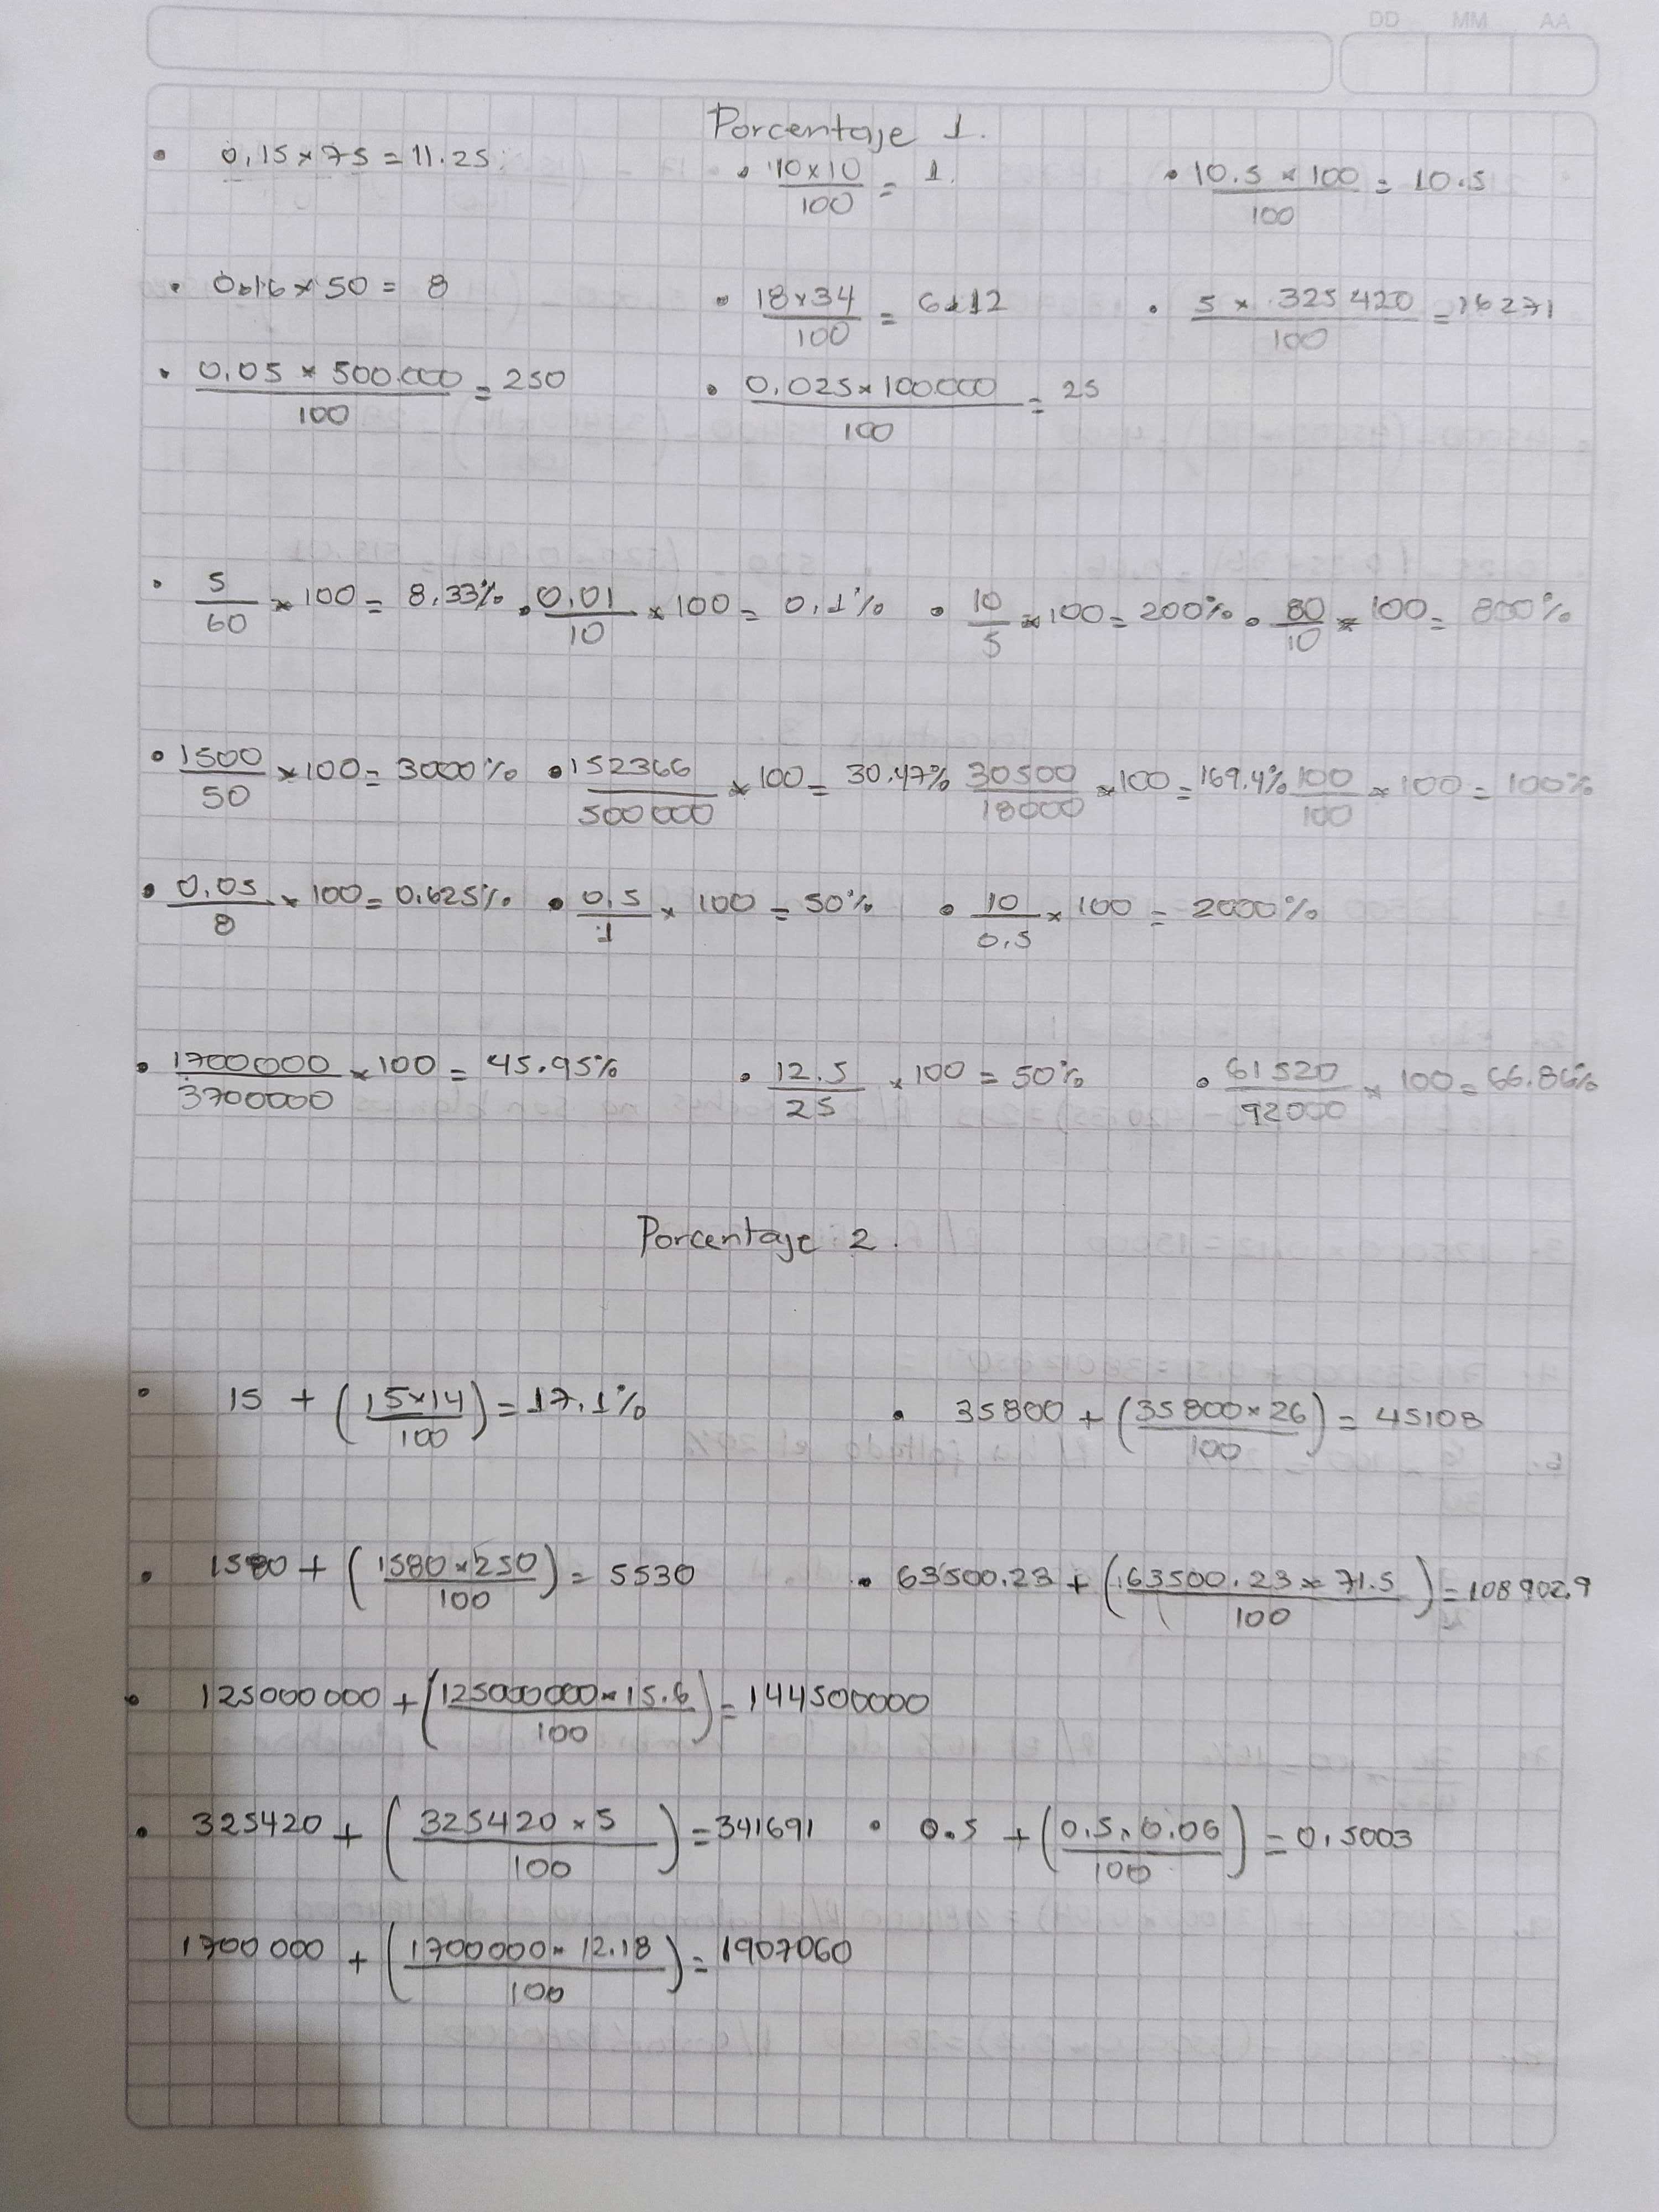 DD MM AA
Porcentaje 1.
• 0,15 × 75 = 11.25 • 10×10/100 = 1. • 10.5 × 100/100 = 10.5
• 0.16 × 50 = 8 • 18×34/100 = 6.12 • 5 × 325420/100 = 16271
• 0,05 × 500.000/100 = 250 • 0,025 × 100000/100 = 25
• 5/60 × 100 = 8,33% • 0,01/10 × 100 = 0,1% • 10/5 × 100 = 200% • 80/10 × 100 = 800%
• 1500/50 × 100 = 3000% • 152366/500000 × 100 = 30.47% 30500/18000 × 100 = 169.4% 100/100 × 100 = 100%
• 0,05/8 × 100 = 0,625% • 0,5/1 × 100 = 50% • 10/0,5 × 100 = 2000%
• 1700000/3700000 × 100 = 45.95% • 12.5/25 × 100 = 50% • 61520/92000 × 100 = 66.86%
Porcentaje 2.
• 15 + (15×14/100) = 17,1% • 35800 + (35800×26/100) = 45108
• 1580 + (1580×250/100) = 5530 • 63500.23 + (63500.23 × 71.5/100) = 108902.9
• 125000000 + (125000000 × 15.6/100) = 144500000
• 325420 + (325420 × 5/100) = 341691 • 0.5 + (0.5 × 0.06/100) = 0,5003
1700000 + (1700000 × 12.18/100) = 1907060